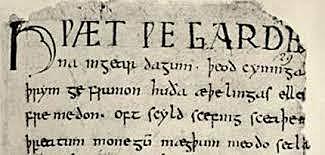 HǷÆT ǷE GARDE
na ingear dagum · þeod cyninga
þrym ge frunon huða æþelingas elle
fremedon · oft scyld scefing sceaþe
þreatum monegū mægþum meodo setla